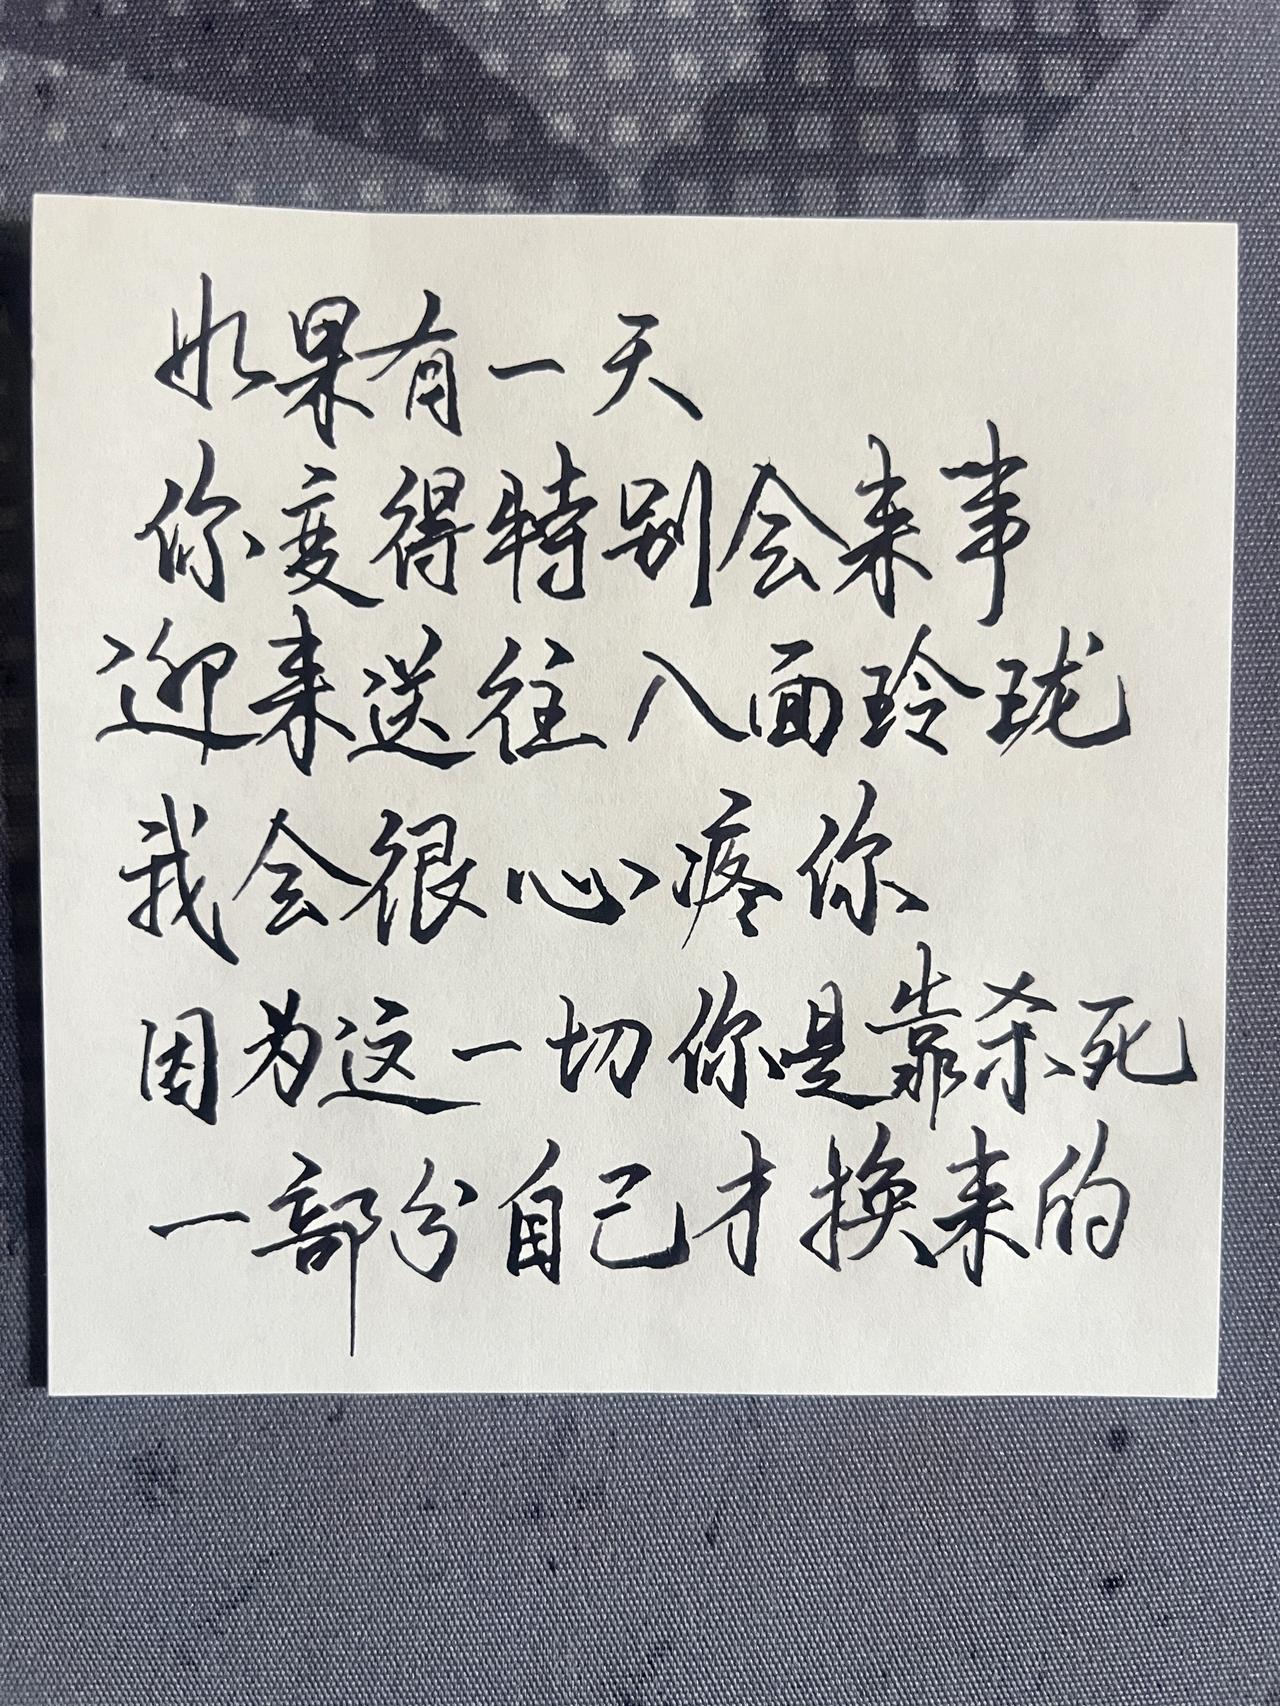 如果有一天
你变得特别会来事
迎来送往八面玲珑
我会很心疼你
因为这一切你是靠杀死
一部分自己才换来的